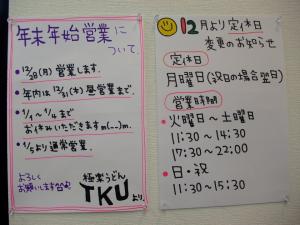 年末年始営業に
ついて
・12/28(月)営業します.
・年内は12/31(木)昼営業まで.
・1/1〜1/4まで
お休みいただきますm(__)m.
・1/5より通常営業.
よろしく
お願いします
極楽うどん
TKUより.
12月より定休日
変更のお知らせ
定休日
月曜日(祝日の場合翌日)
営業時間
・火曜日〜土曜日
11:30〜14:30
17:30〜22:00
・日・祝
11:30〜15:30